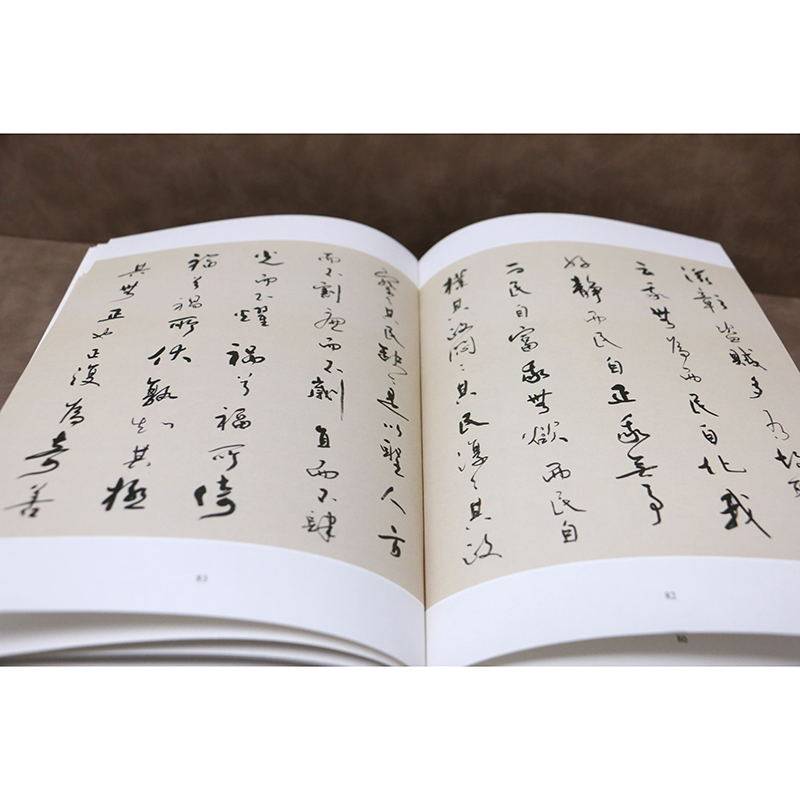 滋彰盜賊多有故聖
云我無為而民自化我
好靜而民自正我無事
而民自富我無欲而民自
樸其政悶〻其民淳〻其政
察〻其民缺〻是以聖人方
而不割廉而不劌直而不肆
光而不耀禍兮福所倚
福兮禍所伏孰知其極
其無正正復為奇善
83
82
80